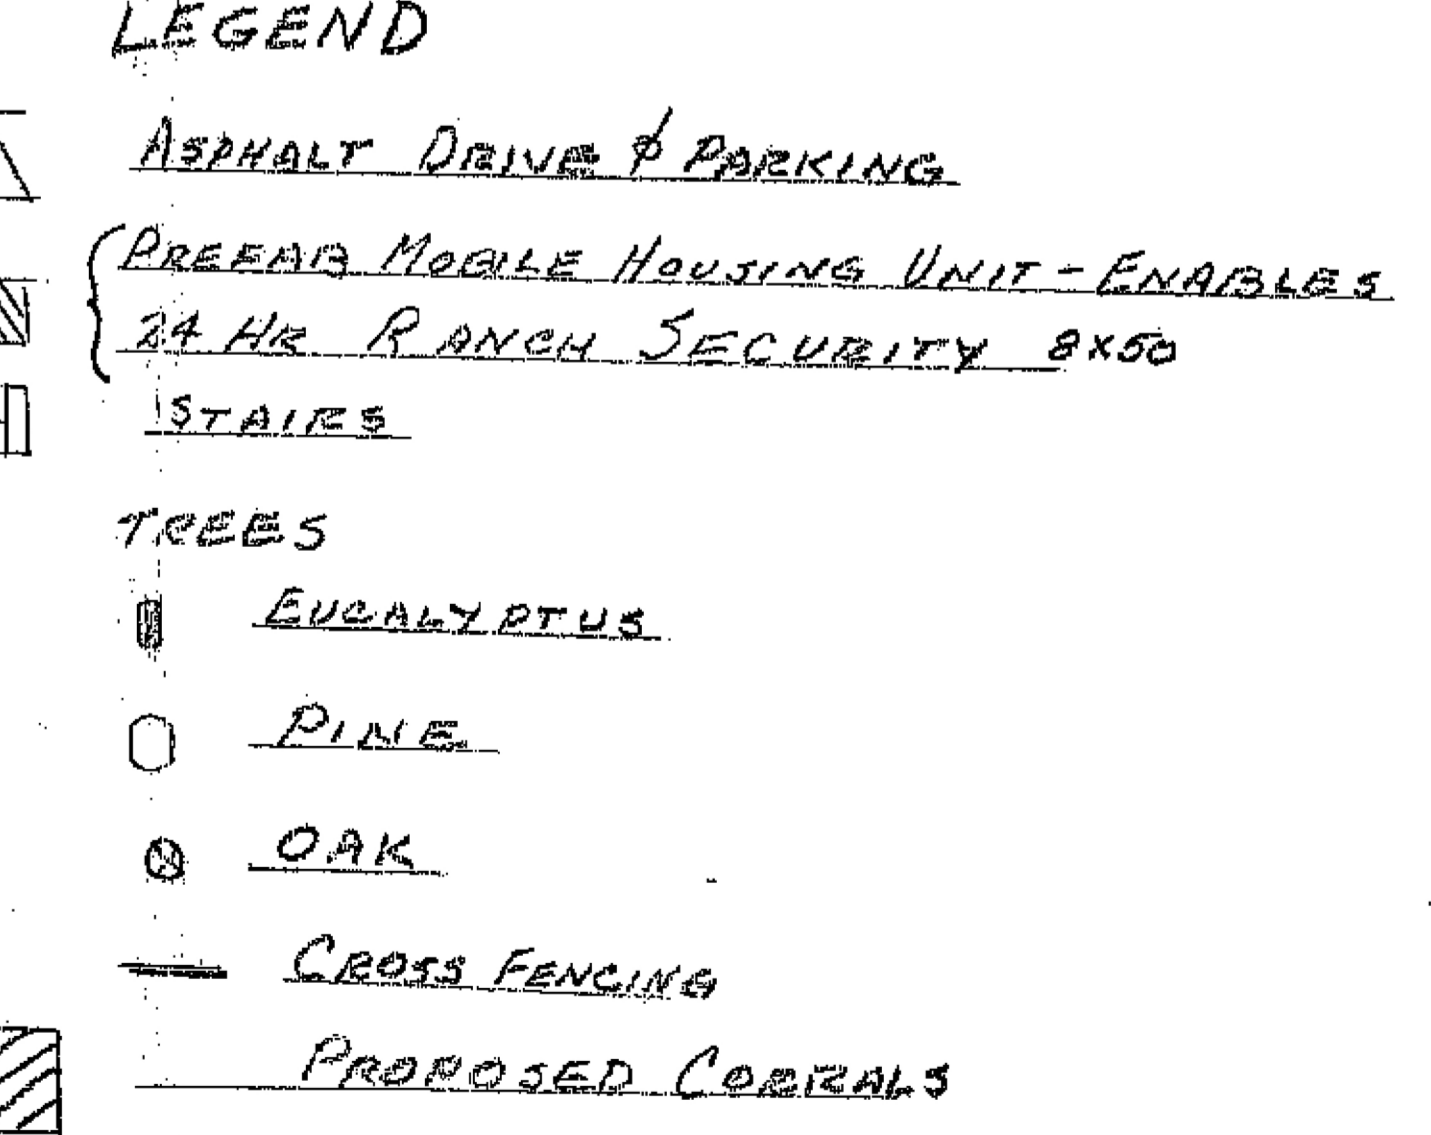 LEGEND
ASPHALT DRIVE & PARKING
PREFAB MOBILE HOUSING UNIT - ENABLES
24 HR RANCH SECURITY 8X50
STAIRS
TREES
EUCALYPTUS
PINE
OAK
CROSS FENCING
PROPOSED CORRALS